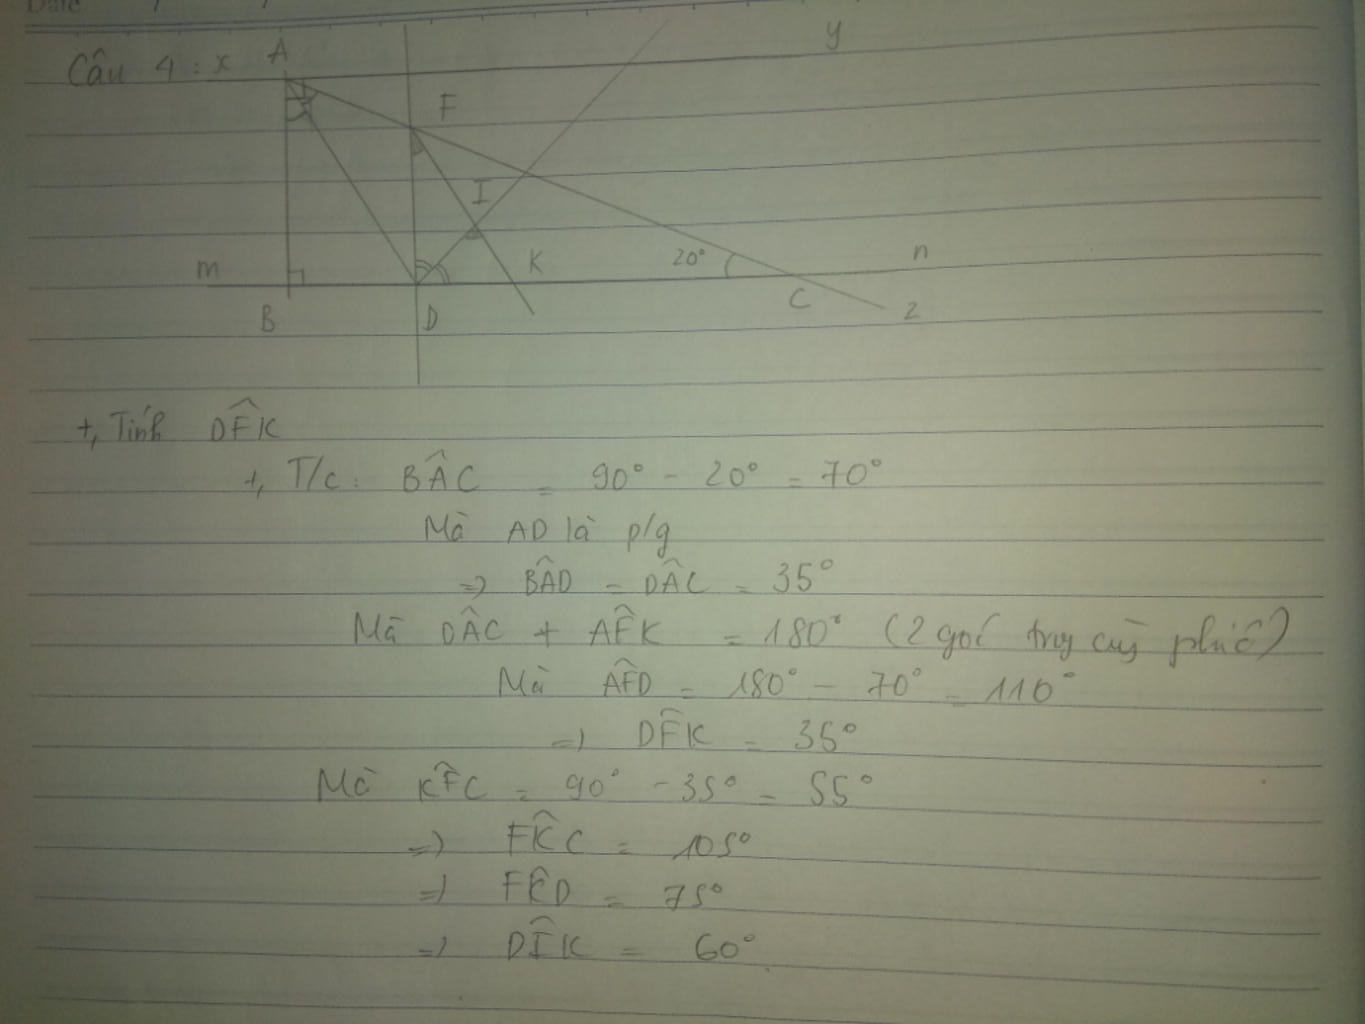 Date / /
Câu 4 : x A y
F
I
m K 20° n
B D C z
+, Tính DF̂K
+, T/c: BÂC = 90° - 20° = 70°
Mà AD là p/g
=> BÂD = DÂC = 35°
Mà DÂC + AF̂K = 180° (2 góc trg cùg phía)
Mà AF̂D = 180° - 70° = 110°
=> DF̂K = 35°
Mà KF̂C = 90° - 35° = 55°
=> FK̂C = 105°
=> FK̂D = 75°
=> DÎK = 60°